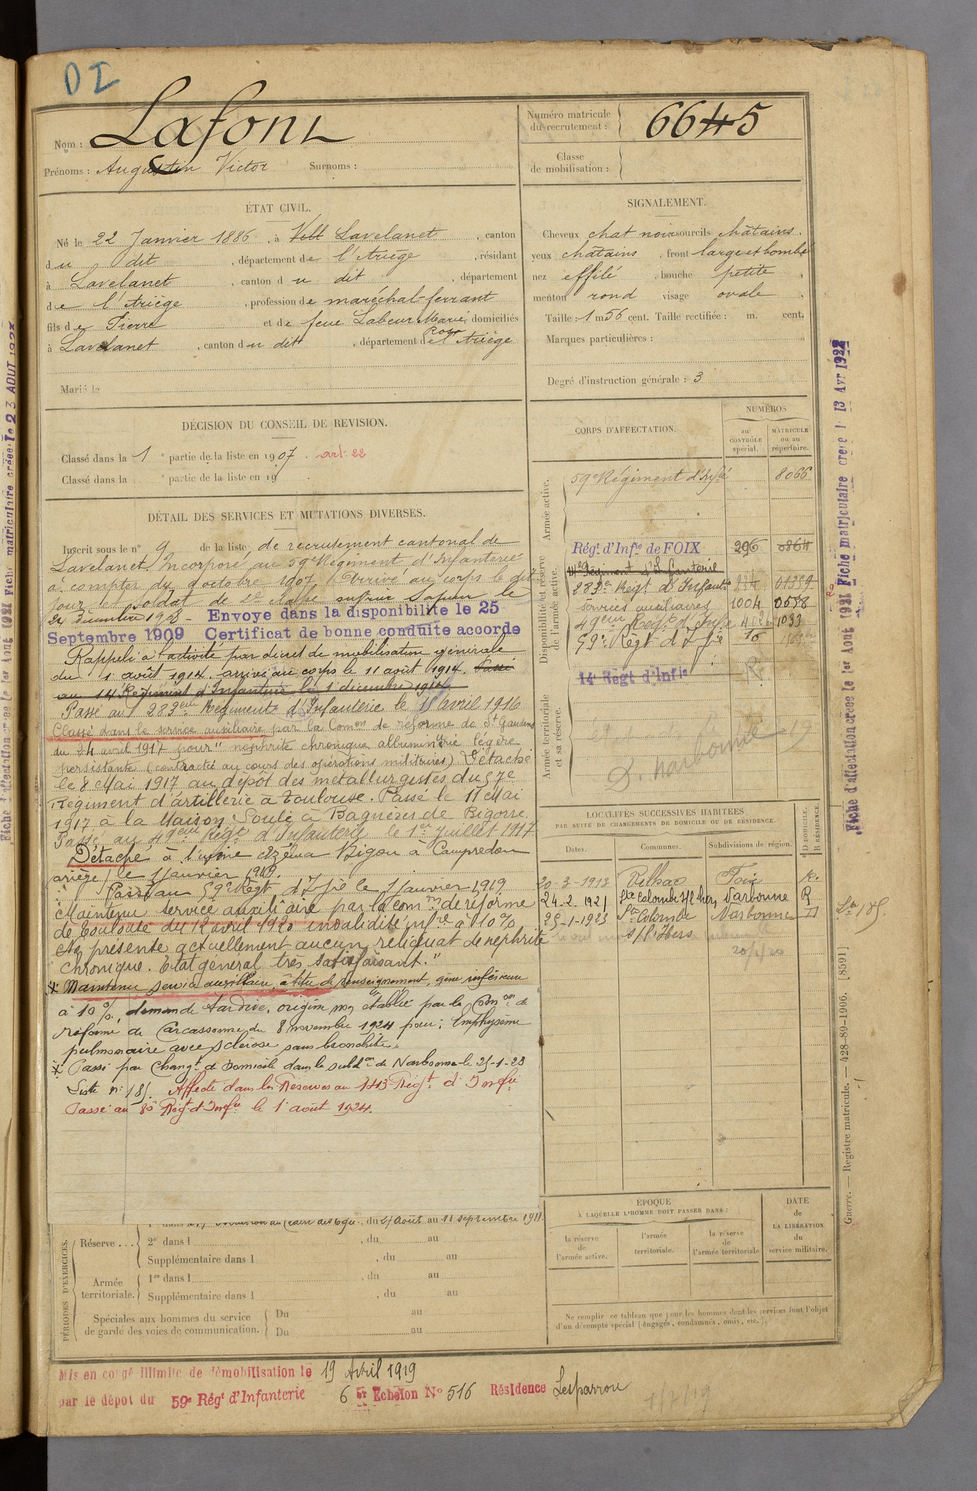 D I
Nom : Lafont
Prénoms : Augustin Victor Surnoms :
Numéro matricule du recrutement : 6645
Classe de mobilisation :
ÉTAT CIVIL.
Né le 22 Janvier 1886, à Lavelanet, canton
du dit, département de l'Ariège, résidant
à Lavelanet, canton du dit, département
de l'Ariège, profession de maréchal ferrant
fils de Pierre et de feue Labeur Marie, domiciliés
à Lavelanet, canton du dit, département Ariège
Marié le
SIGNALEMENT.
Cheveux chat noir sourcils châtains.
yeux châtains, front large et bombé
nez effilé, bouche petite,
menton rond visage ovale
Taille : 1 m 56 cent. Taille rectifiée : m. cent.
Marques particulières :
Degré d'instruction générale : 3
DÉCISION DU CONSEIL DE REVISION.
Classé dans la 1 partie de la liste en 1907. art. 22
Classé dans la partie de la liste en 19
DÉTAIL DES SERVICES ET MUTATIONS DIVERSES.
Inscrit sous le n° 9 de la liste de recrutement cantonal de
Lavelanet. Incorporé au 59e Régiment d'Infanterie
à compter du 9 octobre 1907. Arrivé au corps le dit
jour et soldat de 2e classe sapeur le
24 décembre 1908 - Envoyé dans la disponibilité le 25
Septembre 1909 Certificat de bonne conduite accordé
Rappelé à l'activité par décret de mobilisation générale
du 1 août 1914. arrivé au corps le 11 août 1914. Passé
au 14 Régiment d'Infanterie le 1 décembre 1914
Passé au 283eme Régiment d'Infanterie le 18 avril 1916
Classé dans le service auxiliaire par la Comon de réforme de St Gaudens
du 24 avril 1917 pour "néphrite chronique albuminurie légère
persistante (contractée au cours des opérations militaires) Détaché
le 8 Mai 1917 au dépôt des métallurgistes du 57e
Régiment d'artillerie à Toulouse. Passé le 11 Mai
1917 à la Maison Soulé à Bagnères de Bigorre.
Passé au 49eme Régt d'Infanterie le 1er juillet 1917
Détaché à l'usine Azéma Bigou à Campredon
ariège) le 1 janvier 1919.
Passé au 59e Régt d'Ifie le 1 janvier 1919
Maintenu service auxiliaire par la comm de réforme
de Toulouse du 12 avril 1920 invalidité infre à 10%
ne présente actuellement aucun reliquat de néphrite
chronique. Etat général très satisfaisant."
* Maintenu service auxiliaire, à titre de renseignement, gêne inférieure
à 10%, demande tardive, origine non établie par la Comon de
réforme de Carcassonne du 8 novembre 1924 pour : Emphysème
pulmonaire avec sclérose sans bronchite.
* Passé par Changt de Domicile dans la subdon de Narbonne le 25-1-23
Liste n° 185. Affecté dans la Réserve au 143e Régt d'Infie
Passé au 80 Régt d'Infie le 1 août 1924.
CORPS D'AFFECTATION.
NUMÉROS
au CONTRÔLE spécial.
MATRICULE ou au répertoire.
Armée active.
59e Régiment d'Infie 8066
Disponibilité et réserve de l'armée active.
Régt d'Infie de FOIX 296 0864
14e Régiment d'Infanterie
283e Régt d'Infanterie
Services auxiliaires 1004 0558
49eme Régt d'Infie 1033
59e Régt d'Ifie 16
Armée territoriale et sa réserve.
14e Régt d'Infie
D. Narbonne
LOCALITÉS SUCCESSIVES HABITÉES
PAR SUITE DE CHANGEMENTS DE DOMICILE OU DE RÉSIDENCE.
Dates. Communes. Subdivisions de région. D DOMICILE. R RÉSIDENCE.
20-3-1913 Foix R.
24-2-1921 Ste Colombe s/l'Hers Narbonne R
25-1-1923 Ste Colombe Narbonne D
s/l'Hers
ÉPOQUE
À LAQUELLE L'HOMME DOIT PASSER DANS :
la réserve de l'armée active.
l'armée territoriale.
la réserve de l'armée territoriale
DATE de LA LIBÉRATION du service militaire.
Ne remplir ce tableau que pour les hommes dont les services font l'objet
d'un décompte spécial (engagés, condamnés, omis, etc.).
PÉRIODES D'EXERCICES.
du 21 août au 11 septembre 1911
Réserve ... 2e dans l , du au
Supplémentaire dans l , du au
Armée territoriale. 1re dans l , du au
Supplémentaire dans l , du au
Spéciales aux hommes du service de garde des voies de communication. Du au
Du au
Mis en congé illimité de démobilisation le 19 Avril 1919
par le dépôt du 59e Régt d'Infanterie 6e Echelon N° 516 Résidence Lesparrou
Fiche d'affectation créée le 1er Août 1921 Fiche matriculaire créée le 13 Avr 1922
Guerre. — Registre matricule. — 428-89-1906. [8591]
Fiche d'affectation créée le 1er Août 1921 Fiche matriculaire créée le 23 AOUT 1922